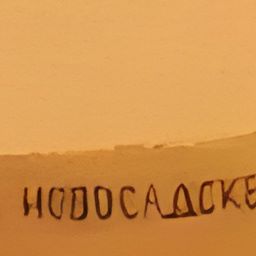 НОВОСАДСКЕ